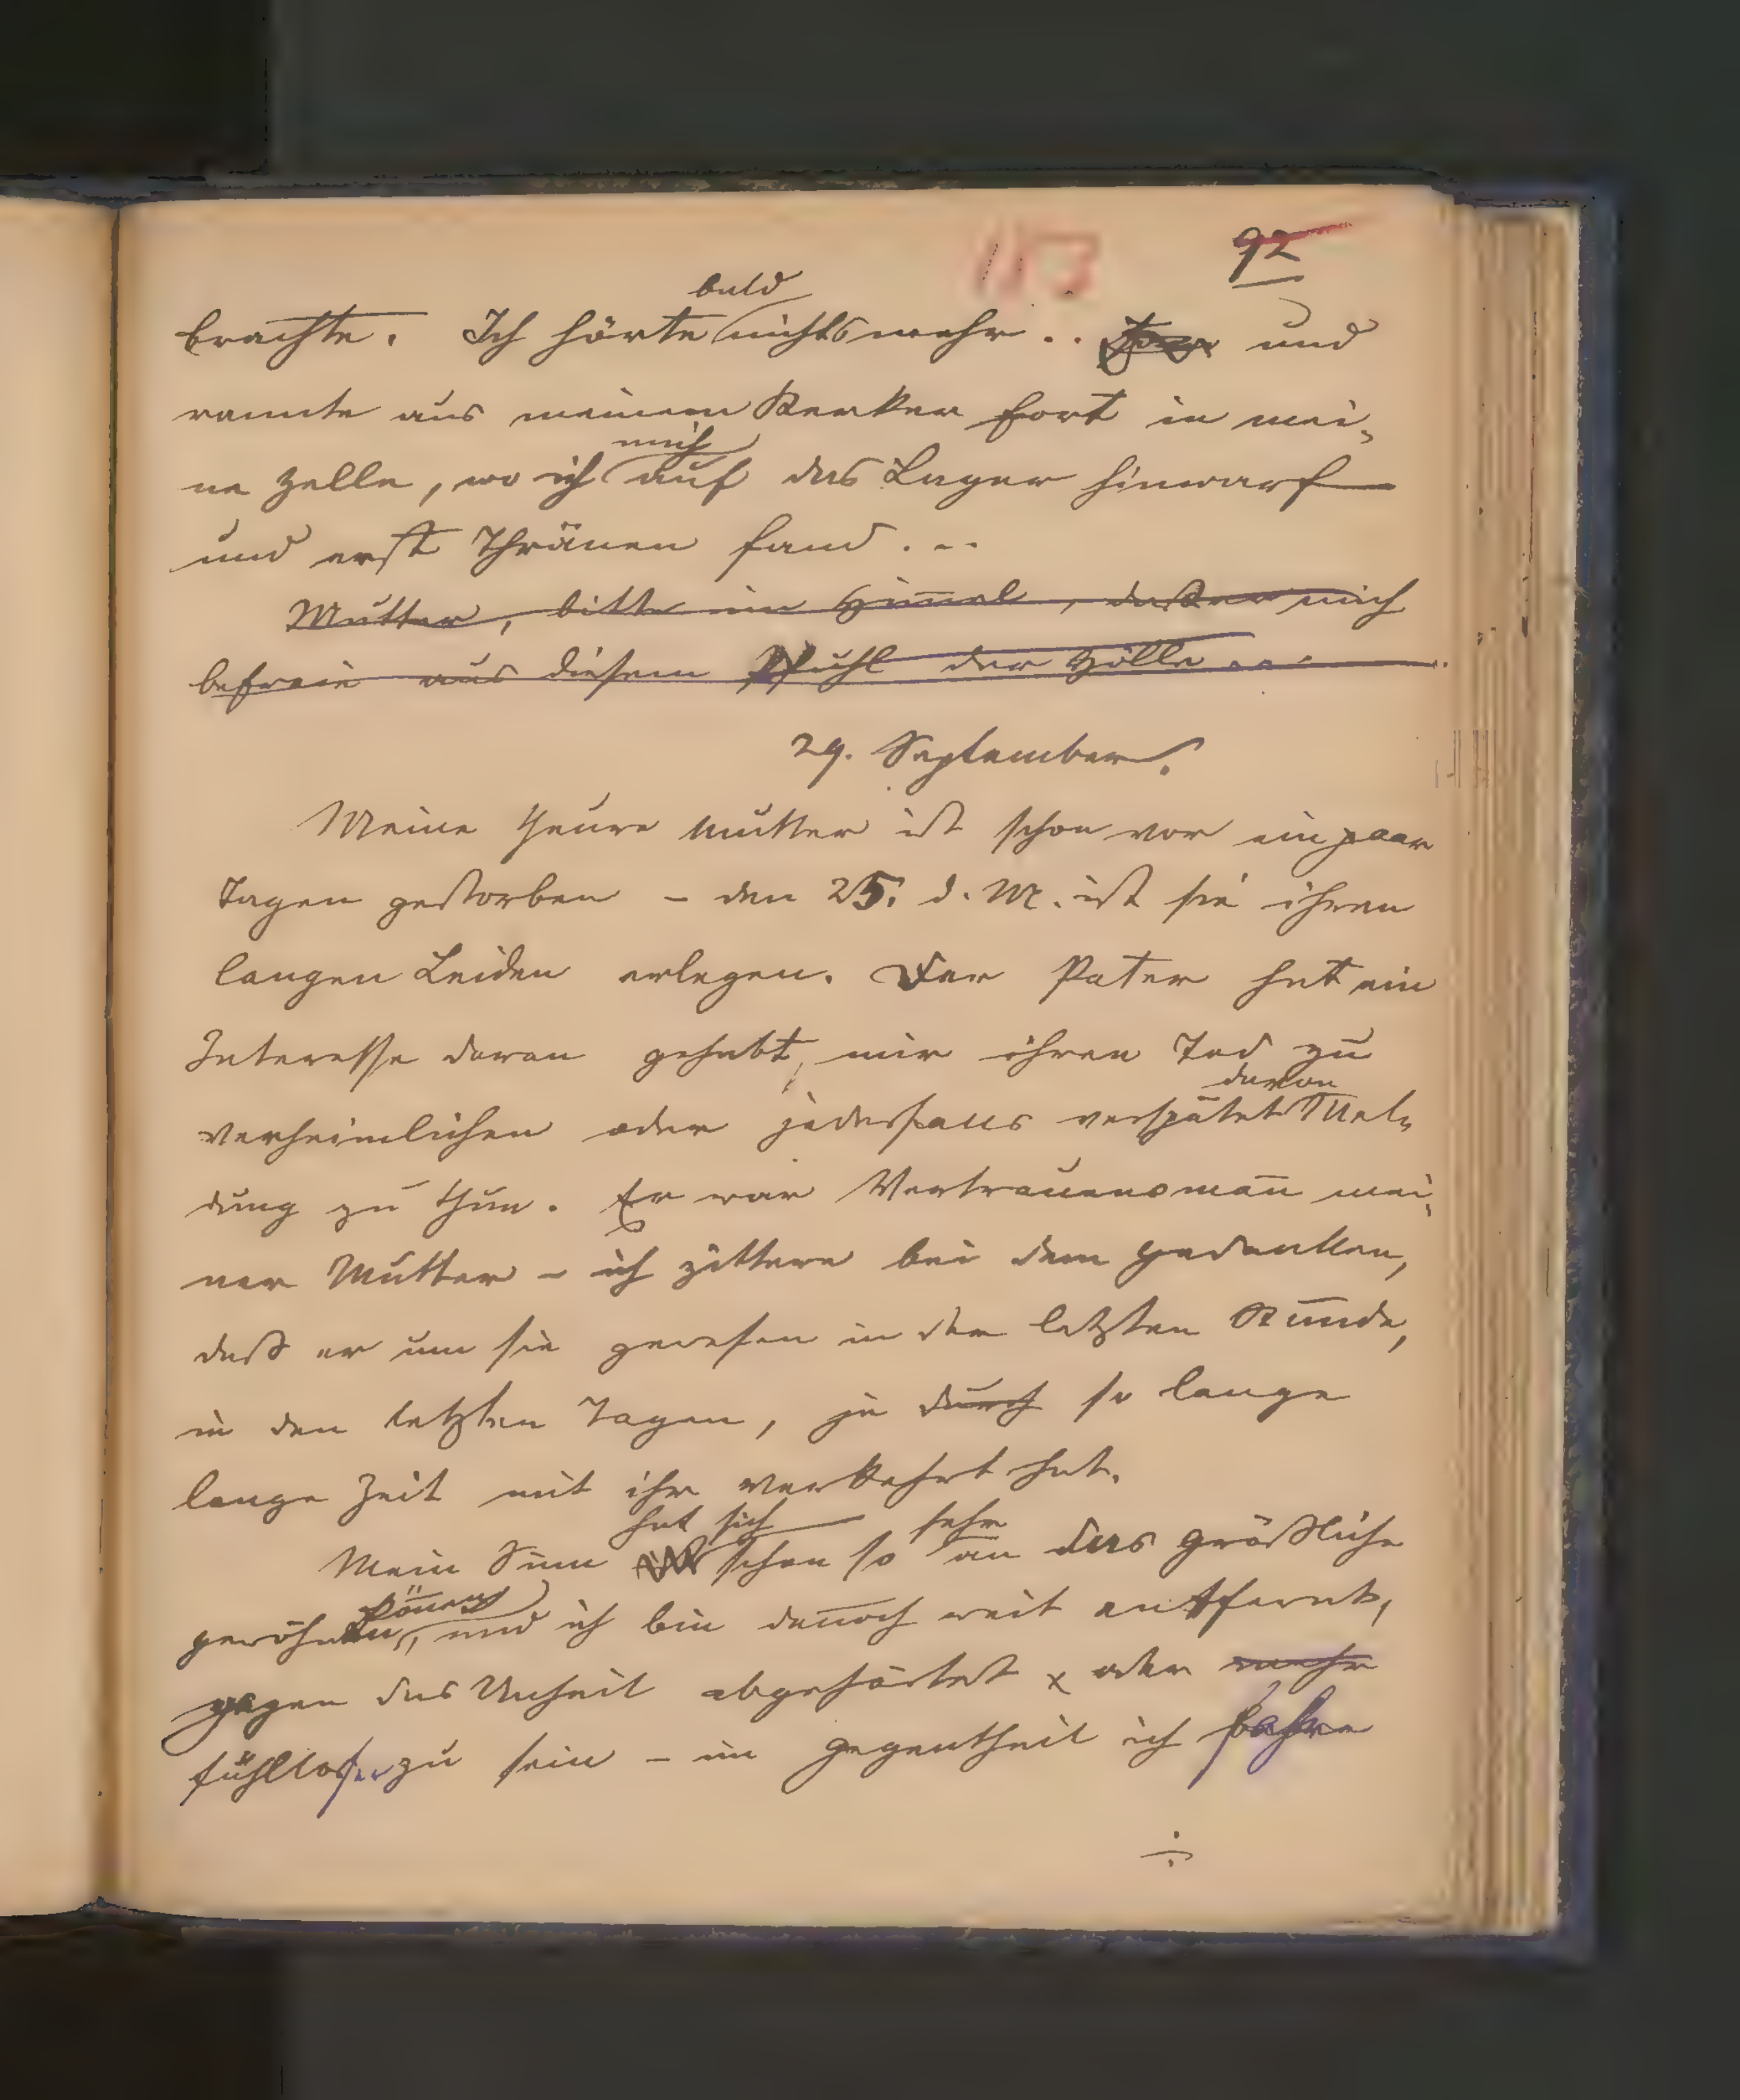 113 92
bald
brachte. Ich hörte nichts mehr .. und
rannte aus meinem Kerker fort in mei-
mich
ne Zelle, wo ich auf das Lager hinwarf
und erst Thränen fand . --
Mutter, bitte im Himel, daß er mich
befreie aus diesem Pfuhl der Hölle ...
29. September.
Meine theure Mutter ist schon vor ein paar
Tagen gestorben – den 25. d. M. ist sie ihren
langen Leiden erlegen. Der Pater hat ein
Interesse daran gehabt, mir ihren Tod zu
davon
verheimlichen oder jedesfalls verspätet Mel-
dung zu thun. Er war Vertrauensman̄ mei-
ner Mutter – ich zittere bei dem Gedanken,
daß er um sie gewesen in der letzten Stunde,
in den letzten Tagen, ja durch so lange
lange Zeit mit ihr verkehrt hat.
hat sich sehr
Mein Sinn schon so an das gräßliche
könen
gewöhnen, und ich bin den̄och weit entfernt,
gegen das Unheil abgehärtet x oder mehr
fühlloser zu sein – im Gegentheil ich